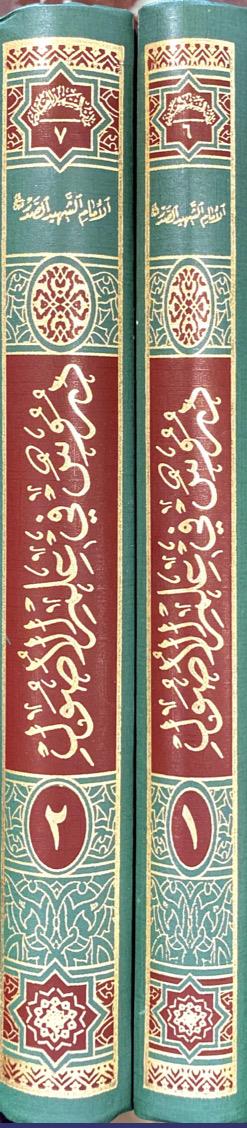 ٦
الإمام الشهيد الصدر
دروس في علم الأصول
١
٧
الإمام الشهيد الصدر
دروس في علم الأصول
٢